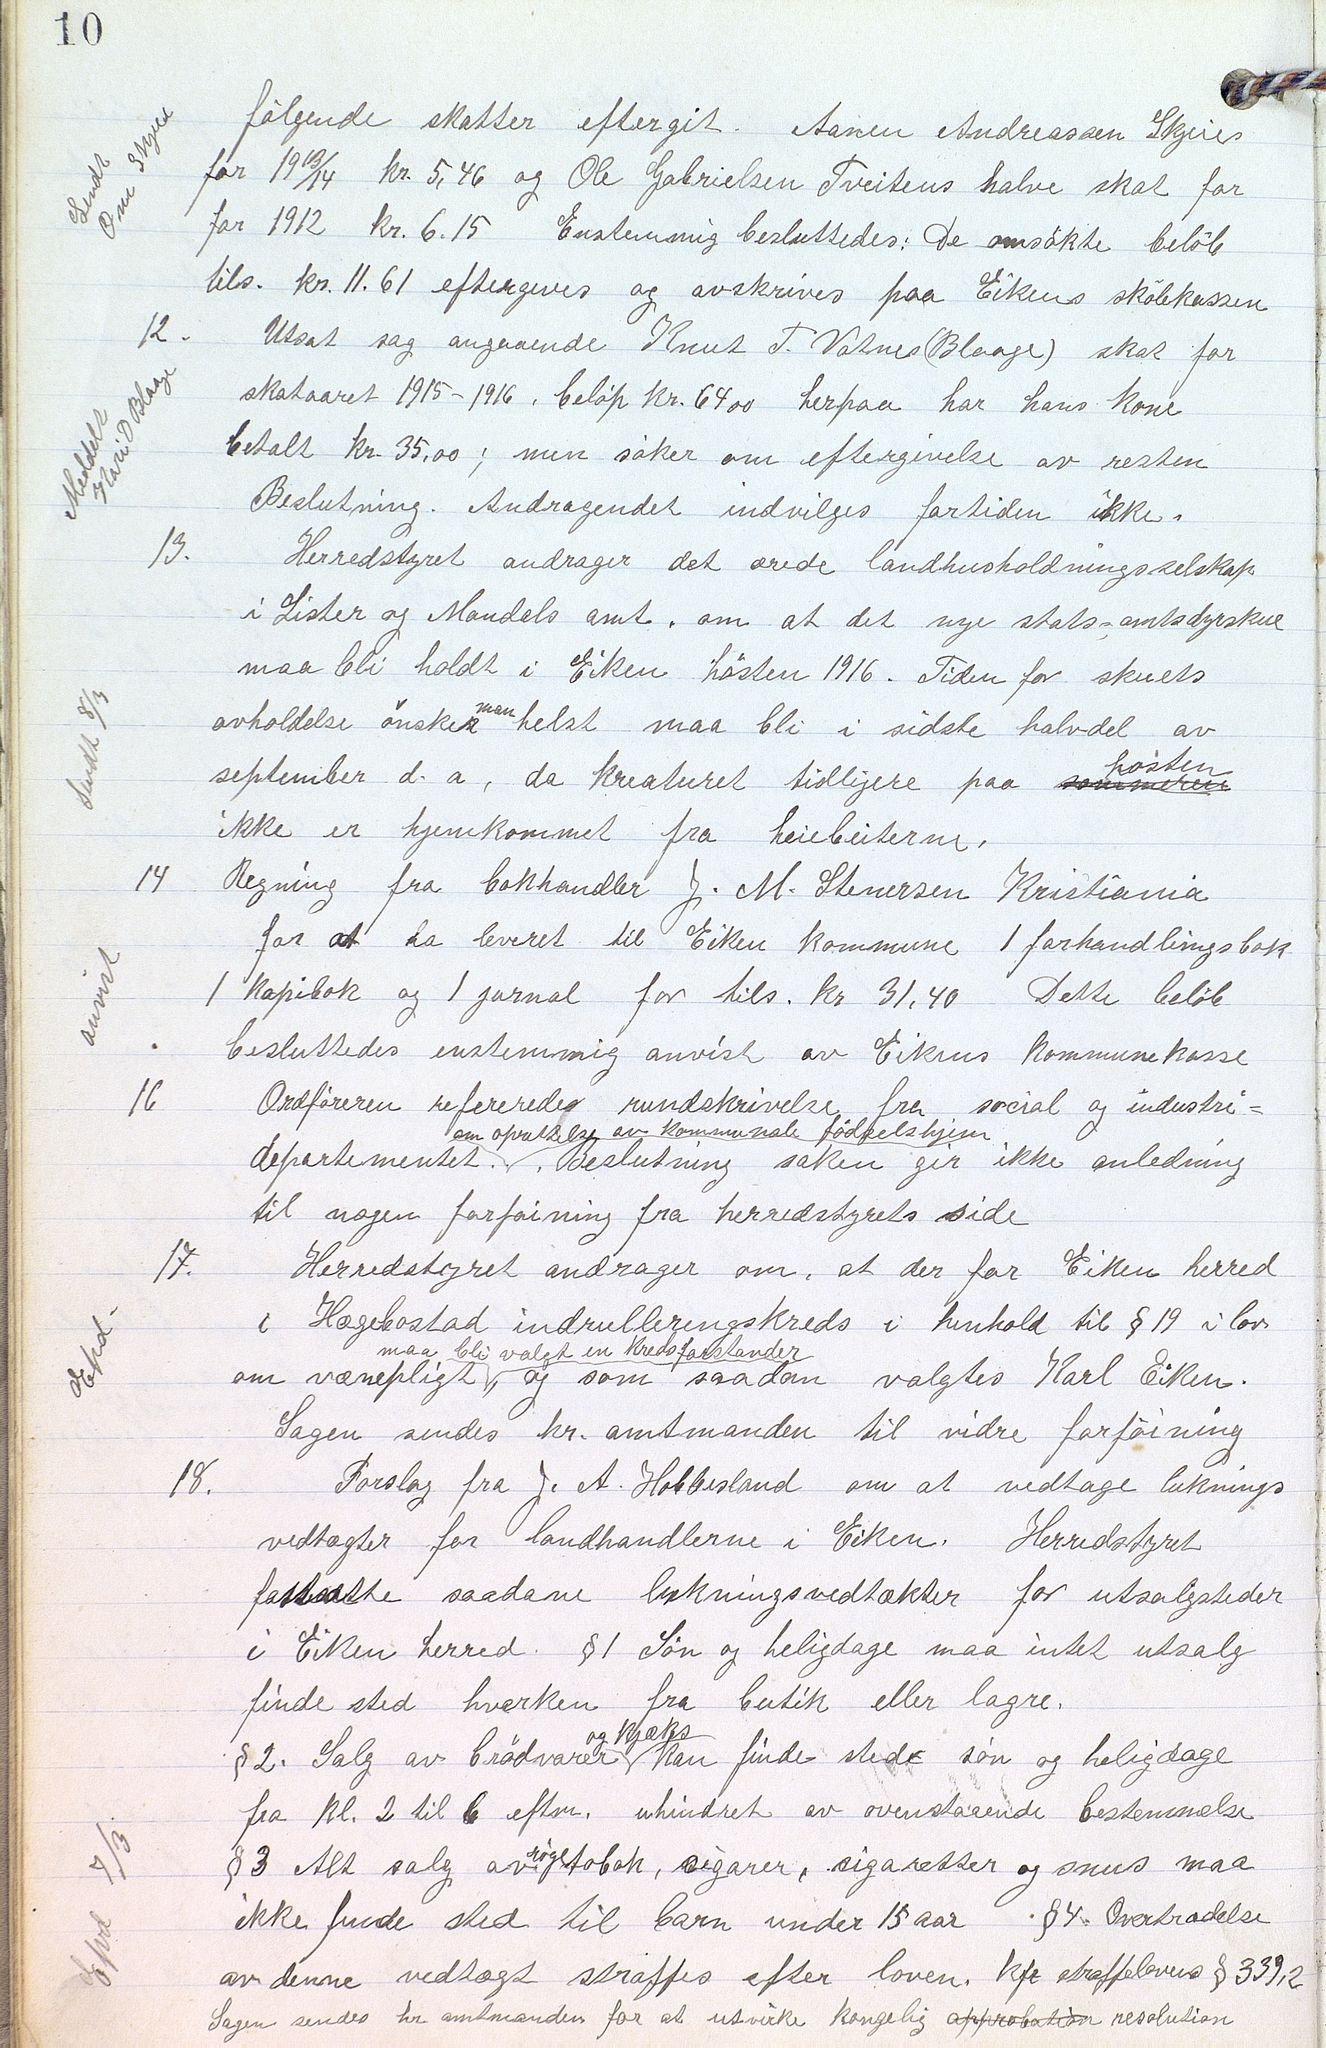 10
følgende skatter eftergit. Aanen Andreassen Skjeies
for 1913/14 kr. 5,46 og Ole Gabrielsen Tveitens halve skat for
for 1912 kr. 6.15 Enstemmig besluttedes: De omsökte belöb
tils. kr. 11.61 eftergives og avskrives paa Eikens skolekassen
Sendt
12. Utsat sag angaaende Knut T. Vatnes (Blaage) skat for
skataaret 1915-1916. beløp kr. 6400 herpaa har hans kone
betalt kr. 35,00; men söker om eftergivelse av resten
Beslutning. Andragendet indvilges fortiden ikke.
Meddelt
Kari D Blaage
13. Herredstyret andrager det ærede landhusholdningsselskap
i Lister og Mandals amt, om at det nye stats-amtsdyrskue
maa bli holdt i Eiken hösten 1916. Tiden for skuets
avholdelse önsker man helst maa bli i sidste halvdel av
september d. a, da kreaturet tidligere paa sommeren hösten
ikke er hjemkommet fra heiebeiterne.
Sendt 8/3
14 Regning fra bokhandler J. M. Stenersen Kristiania
for at ha leveret til Eiken kommune 1 forhandlingsbok
1 kopibok og 1 jurnal for tils. kr 31,40 Dette belöb
besluttedes enstemmig anvist av Eikens kommunekasse
anvist
16 Ordføreren refererede rundskrivelse fra social og industri=
departementet om oprettelse av kommunale fødselshjem. Beslutning saken gir ikke anledning
til nogen forføining fra herredstyrets side
17. Herredstyret andrager om, at der for Eiken herred
i Hægebostad indrulleringskreds i henhold til § 19 i lov
om værnepligt maa bli valgt en kredsforstander, og som saadan valgtes Karl Eiken.
Sagen sendes hr. amtmanden til vidre forföining
Ekspd.
18. Forslag fra J. A. Hobbesland om at vedtage luknings
vedtægter for landhandlerne i Eiken. Herredstyret
fastsatte saadane lukningsvedtækter for utsalgsteder
i Eiken herred. § 1 Søn og heligdage maa intet utsalg
finde sted hverken fra butik eller lagre.
§ 2. Salg av brödvarer og kjæks kan finde sted søn og heligdage
fra kl. 2 til 6 eftm. uhindret av ovenstaaende bestemmelse
§ 3 Alt salg av røgetobak, sigarer, sigaretter og snus maa
ikke finde sted til barn under 15 aar. § 4. Overtrædelse
av denne vedtægt straffes efter loven. kfr straffelovens § 339,2
Sagen sendes hr amtmanden for at utvirke kongelig approbation resolution
7/3